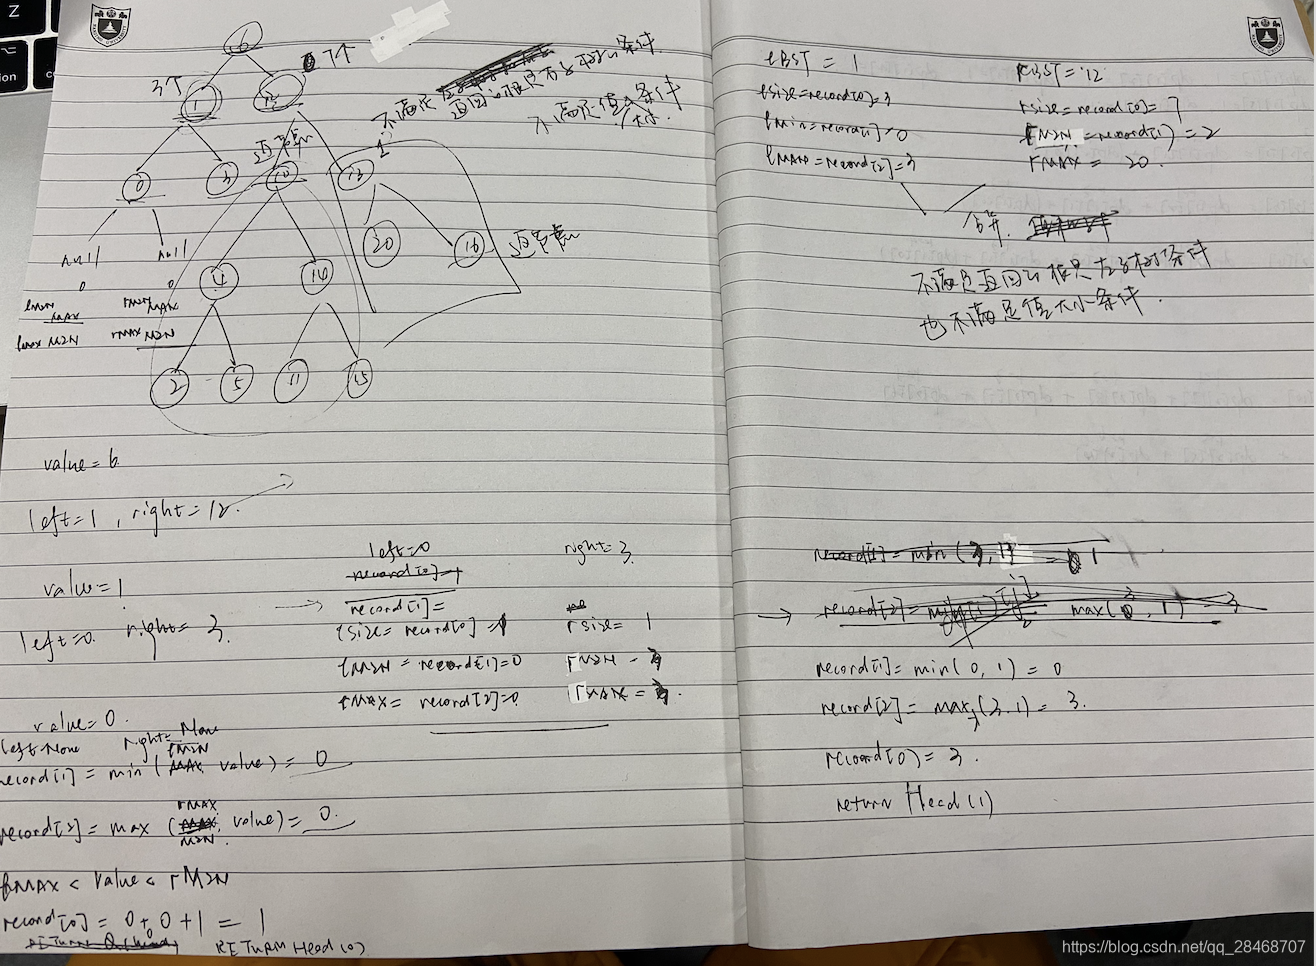 6
3个
7个
1
12
不满足
直因以根是左子树条件
不满足值大小条件
0
3
10
13
1
null
null
4
14
20
16
0
0
lMIN
MAX
rMIN
MAX
lMAX MIN
rMAX MIN
2
5
11
15
value=6
left=1, right=12.
value=1
left=0. right=3.
left=0
right=3.
record[1]=
lsize= record[0]=1
rsize= 1
lMIN = record[1]=0
rMIN =
lMAX= record[2]=0
rMAX =
value=0.
left=None right=None
lMIN
record[1] = min ( value) = 0
rMAX
record[2] = max ( , value) = 0.
lMAX < value < rMIN
record[0] = 0+0+1 = 1
RETURN Head(0)
lBST = 1
rBST = 12
lsize=record[0]=3
rsize=record[0]=7
lMin=record[1]=0
MIN =record[1] = 2
lMAX=record[2]=3
rMAX = 20.
合并.
也不满足值大小条件.
record[1]= min( 0, 1) = 0
record[2]= max (3, 1) = 3.
record[0]= 3.
return Head(1)
https://blog.csdn.net/qq_28468707